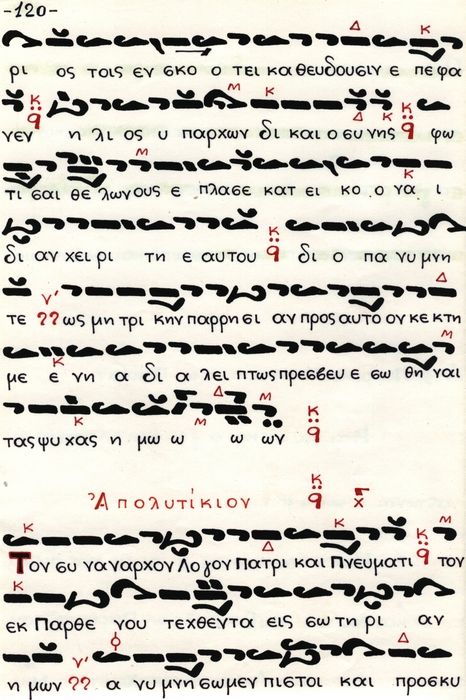 -120-
ρι ος τοις εν σκο ο τει καθευδουσιν ε πε φα
νεν η λι ος υ παρχων δι και ο συ νης φω
τι σαι θε λων ους ε πλασε κατ ει κο ο να ι
δι αν χει ρι τη ε αυτου δι ο πα νυ μνη
τε ως μη τρι κην παρρη σι αν προς αυτο ον κε κτη
με ε νη α δι α λει πτως πρεσβευ ε σω θη ναι
τας ψυ χας η μω ω ω ων
Ἀπολυτίκιον
Τον συ ναναρχον Λογον Πατρι και Πνευματι τον
εκ Παρθε νου τεχθεντα εις σω τη ρι αν
η μων α νυ μνη σωμεν πιστοι και προσκυ